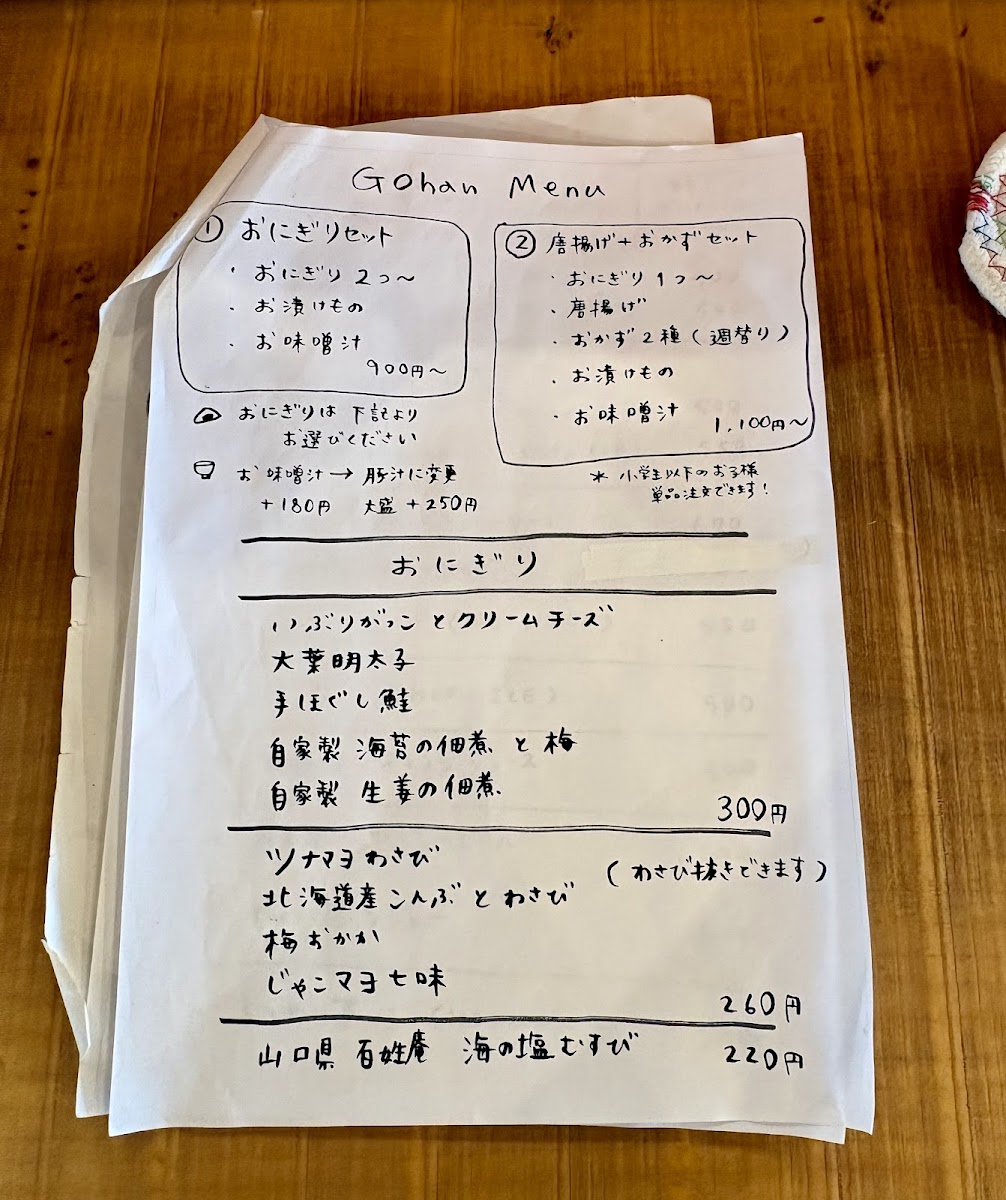 Gohan Menu
① おにぎりセット
・おにぎり 2つ〜
・お漬けもの
・お味噌汁
900円〜
② 唐揚げ+おかずセット
・おにぎり 1つ〜
・唐揚げ
・おかず2種(週替り)
・お漬けもの
・お味噌汁
1,100円〜
おにぎりは 下記より
お選びください
お味噌汁→ 豚汁に変更
+180円 大盛 +250円
* 小学生以下のお子様
単品注文できます!
おにぎり
いぶりがっことクリームチーズ
大葉明太子
手ほぐし鮭
自家製 海苔の佃煮と梅
自家製 生姜の佃煮
300円
ツナマヨわさび
(わさび抜きできます)
北海道産こんぶとわさび
梅おかか
じゃこマヨ七味
260円
山口県 百姓庵 海の塩むすび 220円